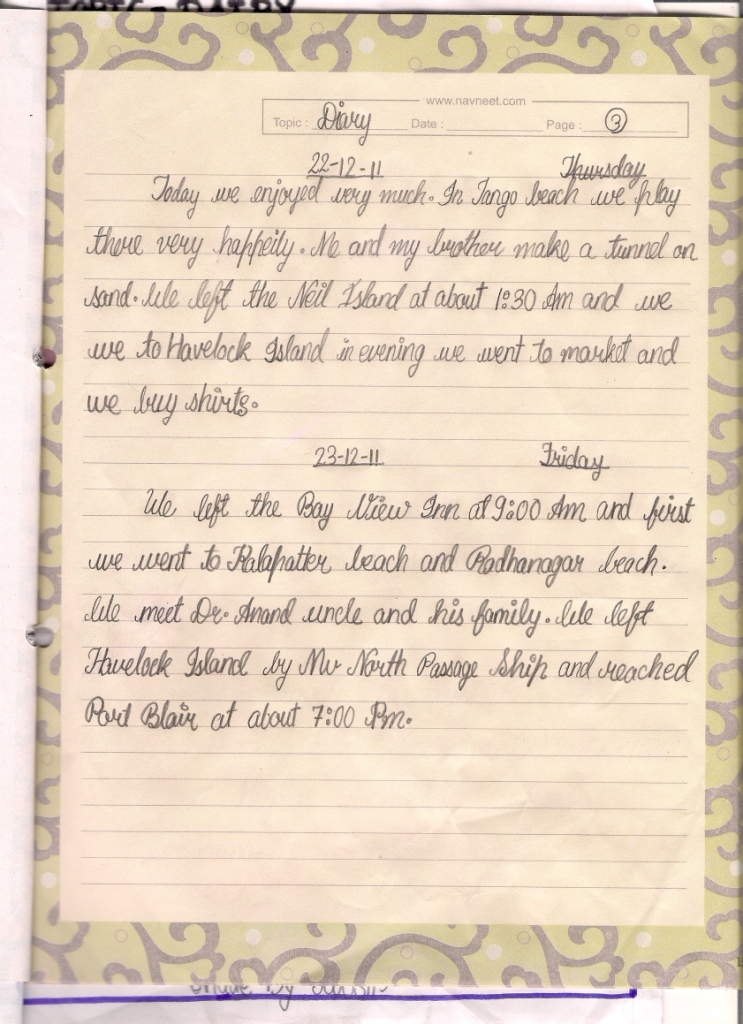 TOPIC - DAIRY
www.navneet.com
Topic : Diary Date : Page : 3
22-12-11 Thursday
Today we enjoyed very much. In Tango beach we play
there very happeily. Me and my brother make a tunnel on
sand. We left the Neil Island at about 1:30 Am and we
we to Havelock Island in evening we went to market and
we buy shirts.
23-12-11 Friday
We left the Bay View Inn at 9:00 Am and first
we went to Kalapatter beach and Radhanagar beach.
We meet Dr. Anand uncle and his family. We left
Havelock Island by Mv North Passage Ship and reached
Port Blair at about 7:00 Pm.